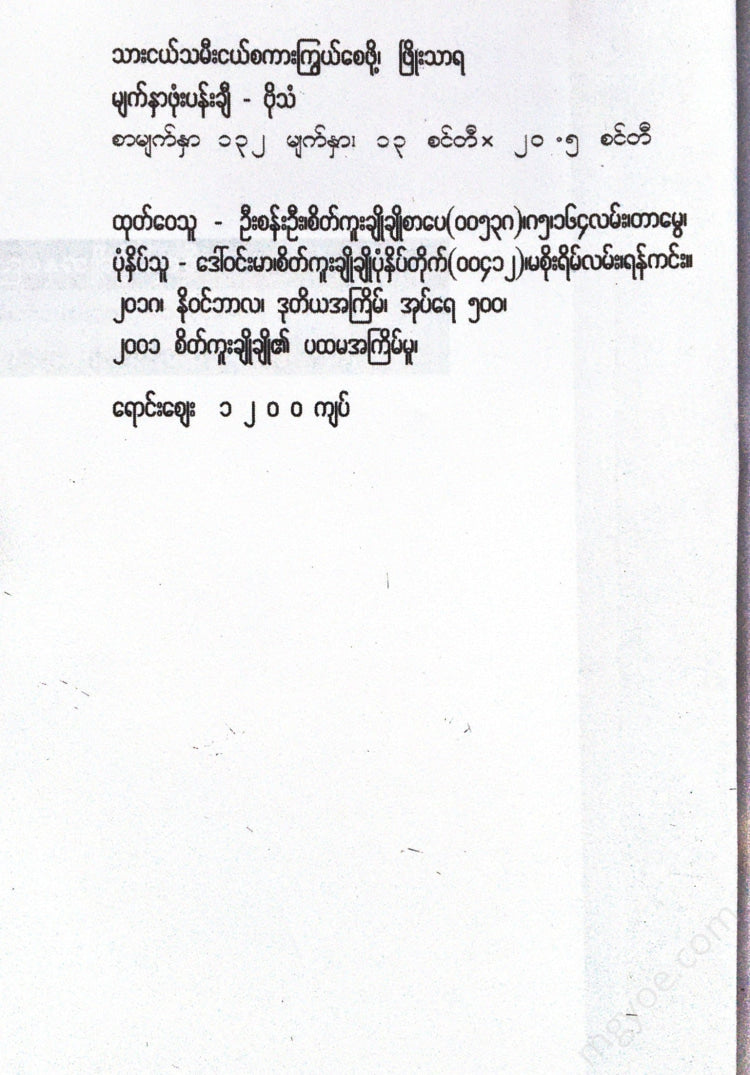 သားငယ်သမီးငယ်စကားကြွယ်စေဖို့၊ ဖြိုးသာရ
မျက်နှာဖုံးပန်းချီ - ဗိုသံ
စာမျက်နှာ ၁၃၂ မျက်နှာ၊ ၁၃ စင်တီ× ၂၀ .၅ စင်တီ
ထုတ်ဝေသူ - ဦးစန်းဦး၊စိတ်ကူးချိုချိုစာပေ(၀၀၅၃၈)၊၈၅၊၁၆၄လမ်း၊တာမွေ၊
ပုံနှိပ်သူ - ဒေါ်ဝင်းမာ၊စိတ်ကူးချိုချိုပုံနှိပ်တိုက်(၀၀၄၁၂)၊မစိုးရိမ်လမ်း၊ရန်ကင်း။
၂၀၁၈၊ နိုဝင်ဘာလ၊ ဒုတိယအကြိမ်၊ အုပ်ရေ ၅၀၀၊
၂၀၀၁ စိတ်ကူးချိုချို၏ ပထမအကြိမ်မူ၊
ရောင်းဈေး ၁ ၂ ၀ ၀ ကျပ်
mgyoe.com